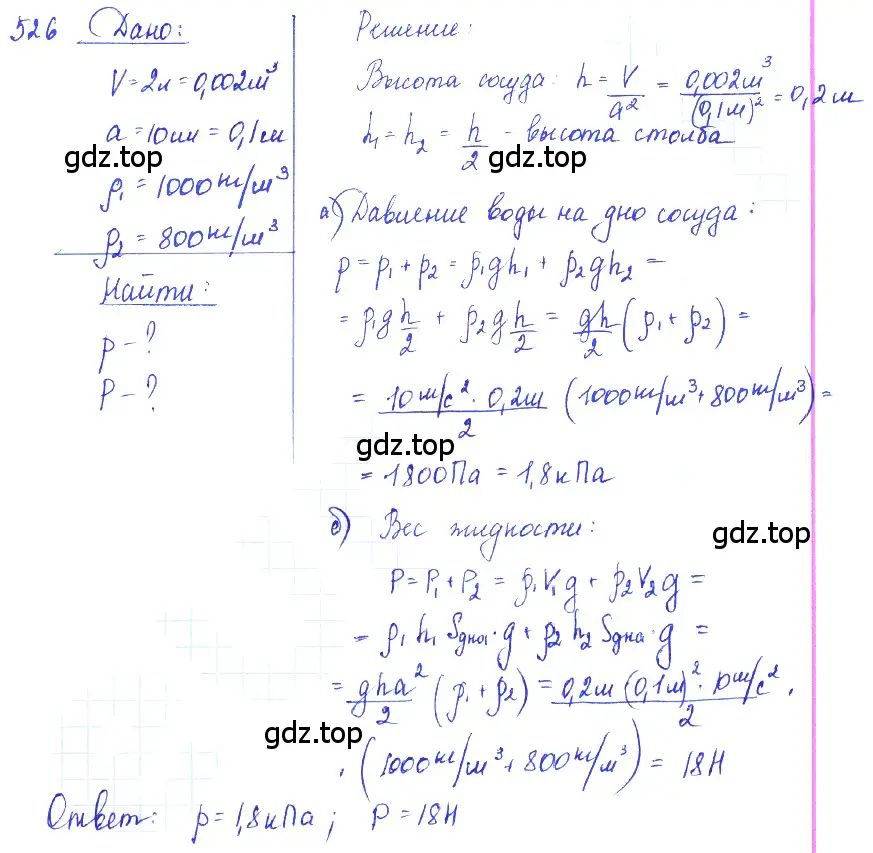 526 Дано:
V = 2л = 0,002м³
a = 10см = 0,1м
gdz.top
ρ₁ = 1000 кг/м³
ρ₂ = 800 кг/м³
Найти:
p – ?
P – ?
Решение:
Высота сосуда: h = V/a² = 0,002м³/(0,1м)² = 0,2м
h₁ = h₂ = h/2 – высота столба
gdz.top
а) Давление воды на дно сосуда:
p = p₁ + p₂ = ρ₁gh₁ + ρ₂gh₂ =
= ρ₁g h/2 + ρ₂g h/2 = gh/2 (ρ₁ + ρ₂) =
= 10 м/с² · 0,2м / 2 (1000 кг/м³ + 800 кг/м³) =
gdz.top
= 1800 Па = 1,8 кПа
б) Вес жидкости:
gdz.top
P = P₁ + P₂ = ρ₁V₁g + ρ₂V₂g =
= ρ₁ h₁ Sдна · g + ρ₂ h₂ Sдна · g =
= gha²/2 (ρ₁ + ρ₂) = 0,2м (0,1м)² · 10 м/с² / 2 ·
gdz.top
· (1000 кг/м³ + 800 кг/м³) = 18Н
Ответ: p = 1,8 кПа; P = 18Н